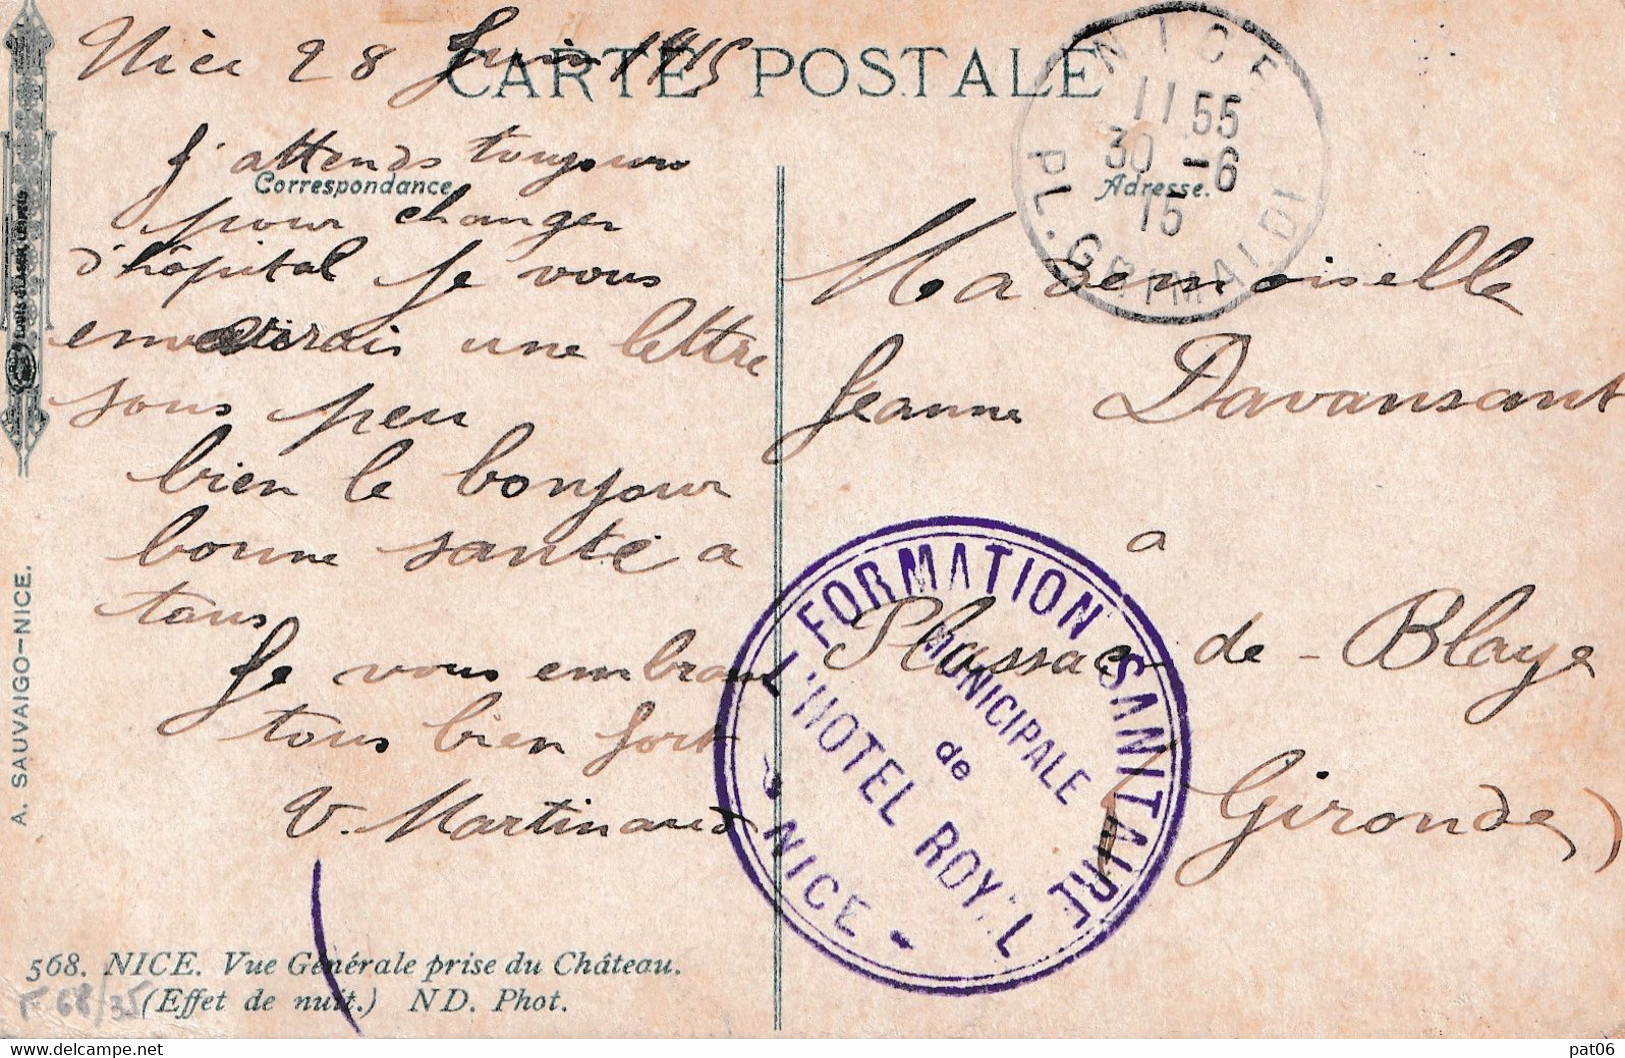 CARTE POSTALE
Nice 28 Juin 1915
Correspondance
J'attends toujours
pour changer
d'hôpital Je vous
enverrais une lettre
sous peu
bien le bonjour
bonne santé a
tous
Je vous embrasse
tous bien fort
V. Martinaud
Adresse.
Mademoiselle
Jeanne Davansant
a
Plassac-de-Blaye
Gironde)
NICE
11 55
30 -6
15
PL. GRIMALDI
FORMATION SANITAIRE
MUNICIPALE
de
L'HOTEL ROYAL
- NICE -
A. SAUVAIGO-NICE.
568. NICE. Vue Générale prise du Château.
(Effet de nuit.) ND. Phot.
F 68/35
pat06